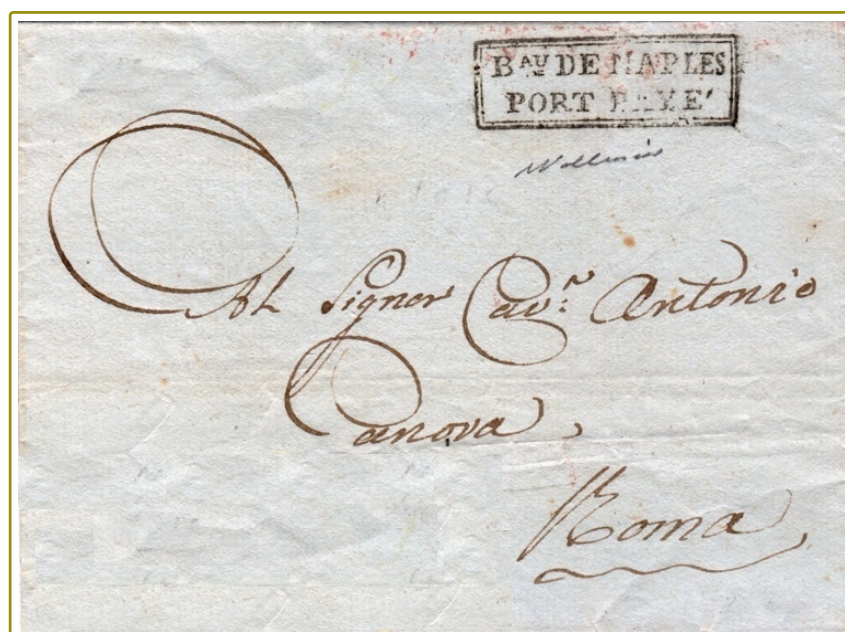 BAU DE NAPLES
PORT PAYE'
Al Signor Cavr: Antonio
Canova,
Roma